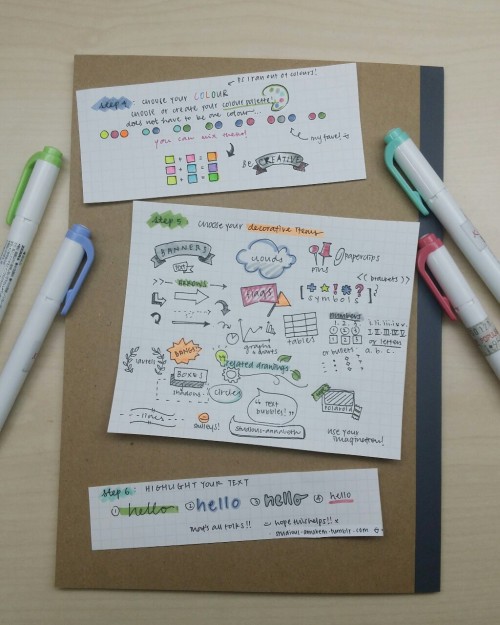 BC I ran out of colours!
step 4: choose your COLOUR
choose or create your colour palette!
does not have to be one colour...
you can mix them!
my fave!
+ =
+ =
+ =
Be CREATIVE
step 5 choose your decorative items
BANNERS
clouds
pins
paperclips
<( brackets )>
ARROWS
flags
symbols
graphs & charts
tables
numbers
1. 2. 3.
i. ii. iii. iv. v.
I. II. III. IV. V.
or letters
a. b. c.
or bullets
laurels
BANGS
related drawings
BOXES
shadows
circles
text bubbles!
polaroid
lines
smileys!
studious-annabeth
use your imagination!
step 6: HIGHLIGHT YOUR TEXT
① hello ② hello ③ hello ④ hello
that's all folks!! ~ hope this helps!! x
studious-annabeth.tumblr.com